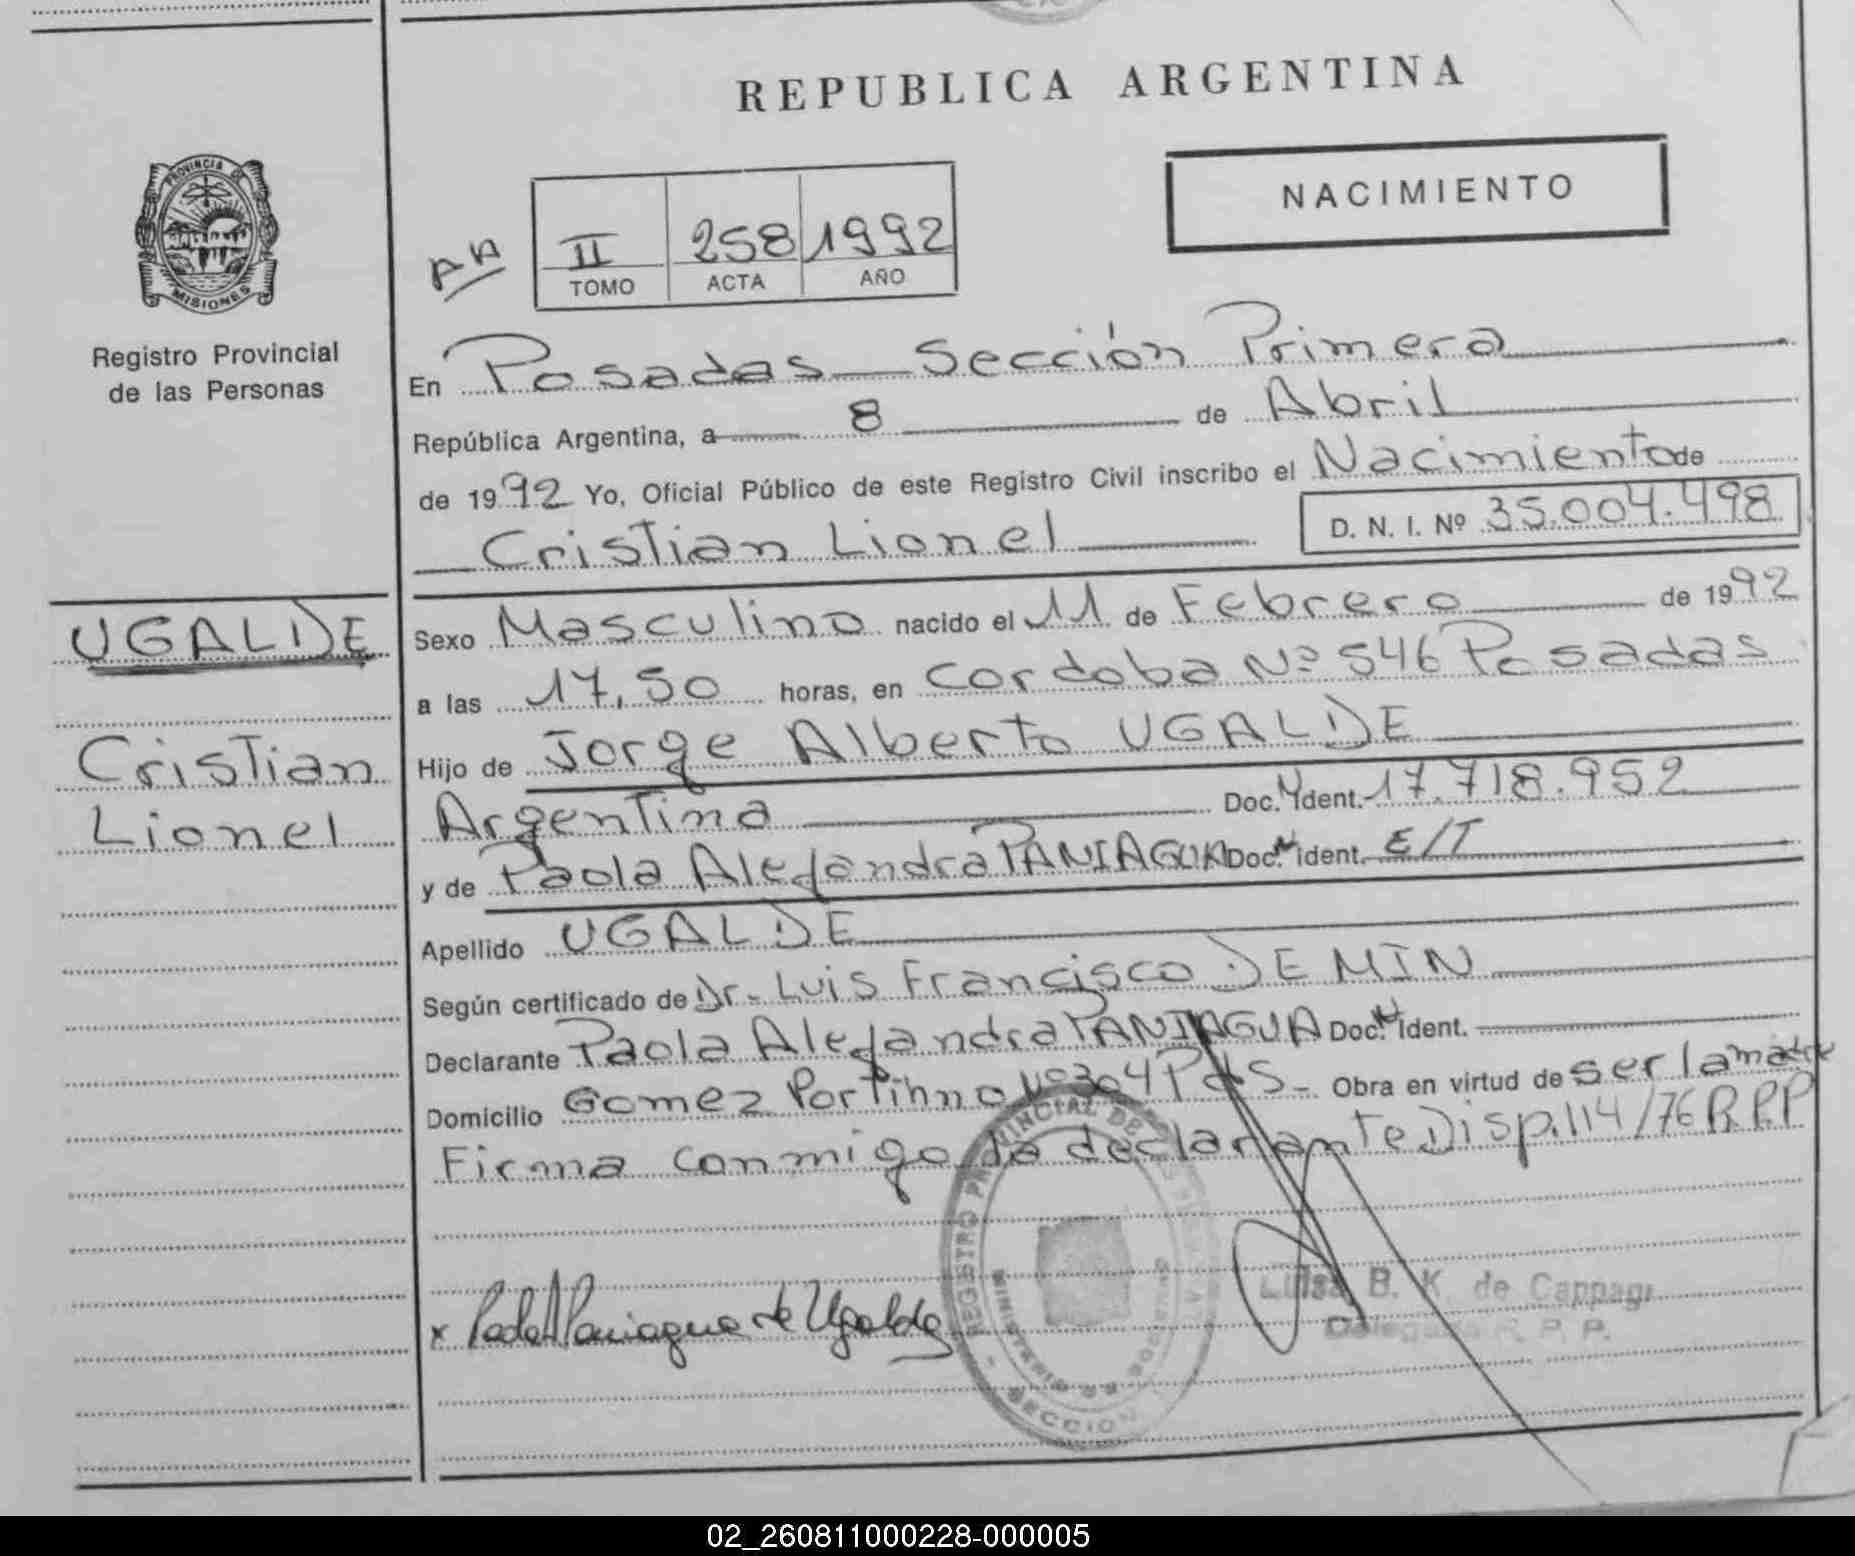 REPUBLICA ARGENTINA
NACIMIENTO
PROVINCIA DE
MISIONES
Registro Provincial
de las Personas
II 258 1992
TOMO ACTA AÑO
En Posadas Sección Primera
República Argentina, a 8 de Abril
de 1992 Yo, Oficial Público de este Registro Civil inscribo el Nacimiento de
Cristian Lionel D. N. I. Nº 35.004.498
UGALDE
Cristian
Lionel
Sexo Masculino nacido el 11 de Febrero de 1992
a las 17,50 horas, en Cordoba Nº 546 Posadas
Hijo de Jorge Alberto UGALDE
Argentina Doc. Ident. 17.718.952
y de Paola Alejandra PANIAGUA Doc. Ident. E/T
Apellido UGALDE
Según certificado de Dr. Luis Francisco DEMIN
Declarante Paola Alejandra PANIAGUA Doc. Ident.
Domicilio Gomez Portihno Nº 304 Pdas - Obra en virtud de ser la madre
Firma conmigo la declarante Disp. 114/76 R.P.P
x Paola A Paniagua de Ugalde
REGISTRO PROVINCIAL DE
SECCION
B. K. de Cappagi
Delegada R. P. P.
02_260811000228-000005